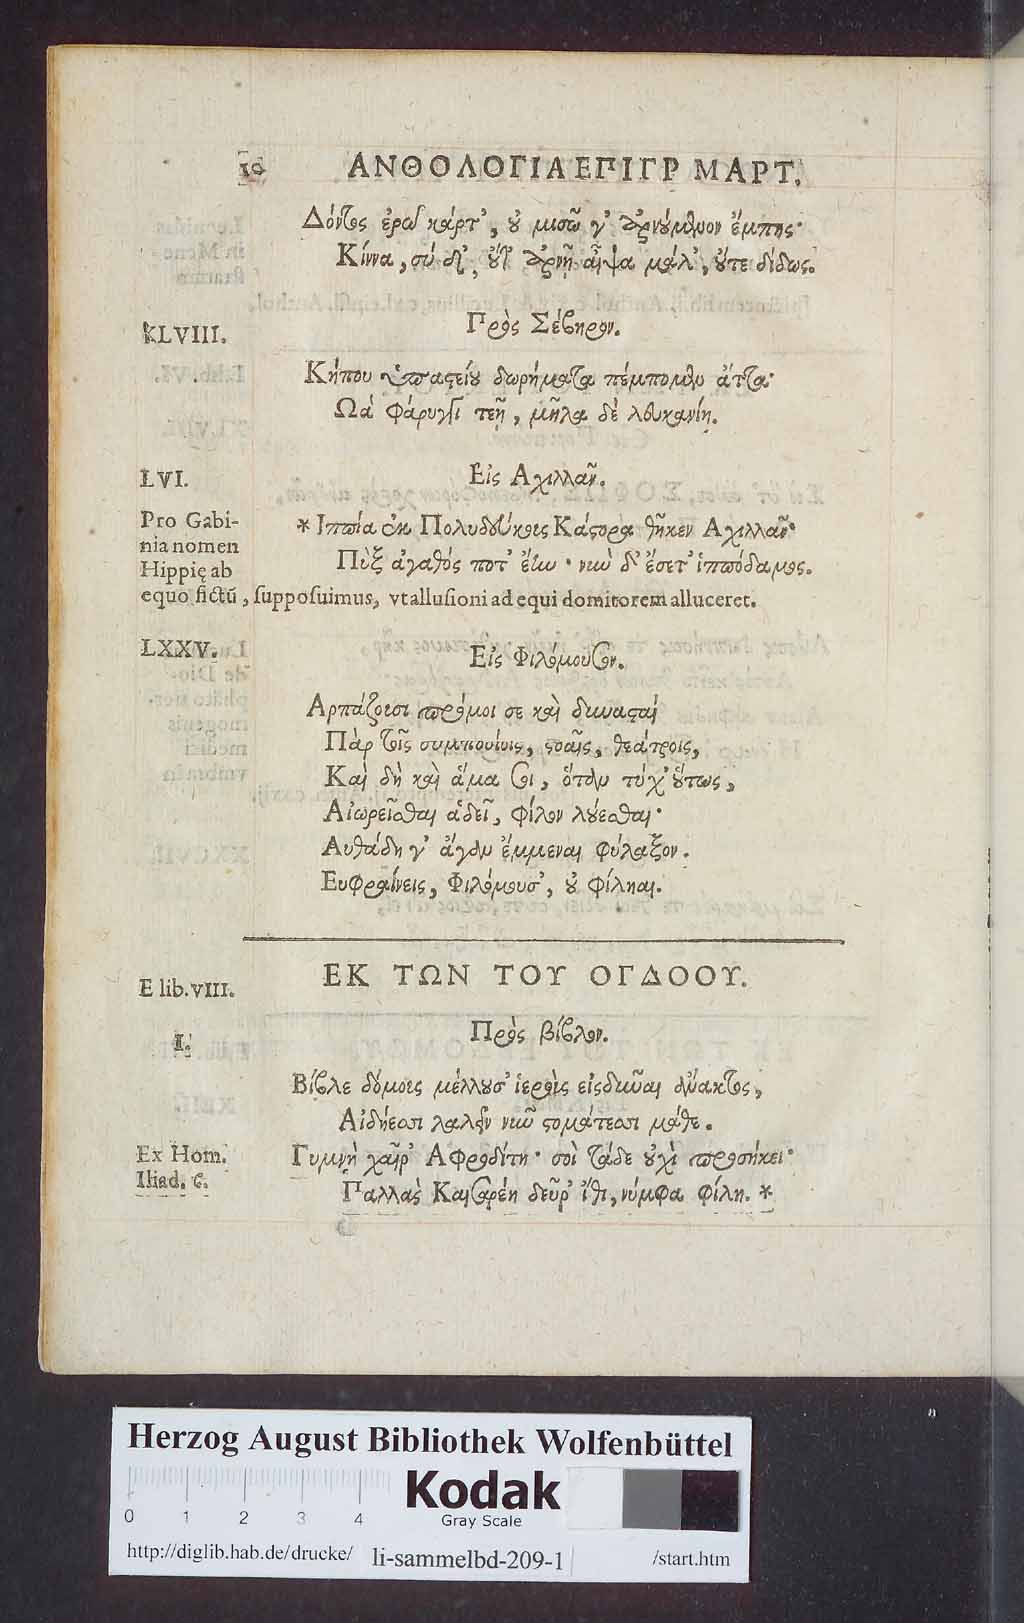 10 ΑΝΘΟΛΟΓΙΑ ΕΠΙΓΡ ΜΑΡΤ.
Δόντος ἐρῶ κάρτ', οὐ μισῶ γ' ἀρνούμενον ἔμπης·
Κίννα, σὺ δ', οὔτ' ἀρνῇ αἶψα μάλ', οὔτε δίδως.
XLVIII. Πρὸς Σέβηρον.
Κήπου ὑπαστείου δωρήματα πέμπομεν ἄττα·
Ωὰ φάρυγγι τεῇ, μῆλα δὲ λευκανίῃ.
LVI. Εἰς Αχιλλᾶν.
Pro Gabi-
nia nomen
Hippię ab
equo fictū, supposuimus, vt allusioni ad equi domitorem alluceret.
* Ιππία ἐκ Πολυδεύκεος Κάστορα θῆκεν Αχιλλᾶν·
Πὺξ ἀγαθός ποτ' ἔην· νῦν δ' ἔσετ' ἱππόδαμος.
LXXV. Εἰς Φιλόμουσον.
Αρπάζοισι πρόμοι σε καὶ δυνασταὶ
Πὰρ τοῖς συμποσίοις, στοαῖς, θεάτροις,
Καὶ δὴ καὶ ἅμα σοι, ὅταν τύχ' οὕτως,
Αἰωρεῖσθαι ἁδεῖ, φίλον λούεσθαι·
Αυθάδη γ' ἄγαν ἔμμεναι φύλαξον.
Ευφραίνεις, Φιλόμουσ', οὐ φίλησαι.
E lib. VIII. ΕΚ ΤΩΝ ΤΟΥ ΟΓΔΟΟΥ.
I. Πρὸς βίβλον.
Βίβλε δόμοις μέλλουσ' ἱεροῖς εἰσδῦναι ἄνακτος,
Αἰδήεσσι λαλεῖν νῦν στομάτεσσι μάθε.
Ex Hom.
Iliad. ς.
Γυμνὴ χαῖρ' Αφροδίτη· σοὶ τάδε οὐχὶ προσήκει·
Παλλὰς Καισαρέη δεῦρ' ἴθι, νύμφα φίλη. *
Herzog August Bibliothek Wolfenbüttel
0 1 2 3 4
Kodak
Gray Scale
http://diglib.hab.de/drucke/ li-sammelbd-209-1 /start.htm